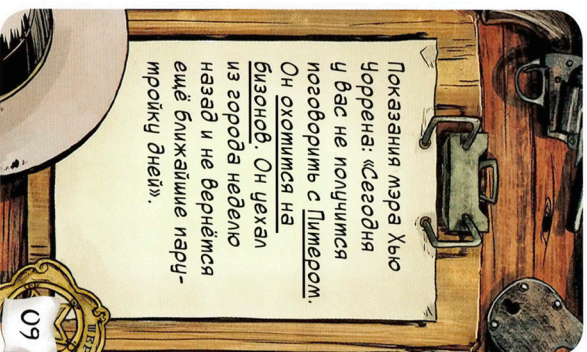 Показания мэра Хью
Уоррена: «Сегодня
у вас не получится
поговорить с Питером.
Он охотится на
бизонов. Он уехал
из города неделю
назад и не вернётся
ещё ближайшие пару-
тройку дней».
09